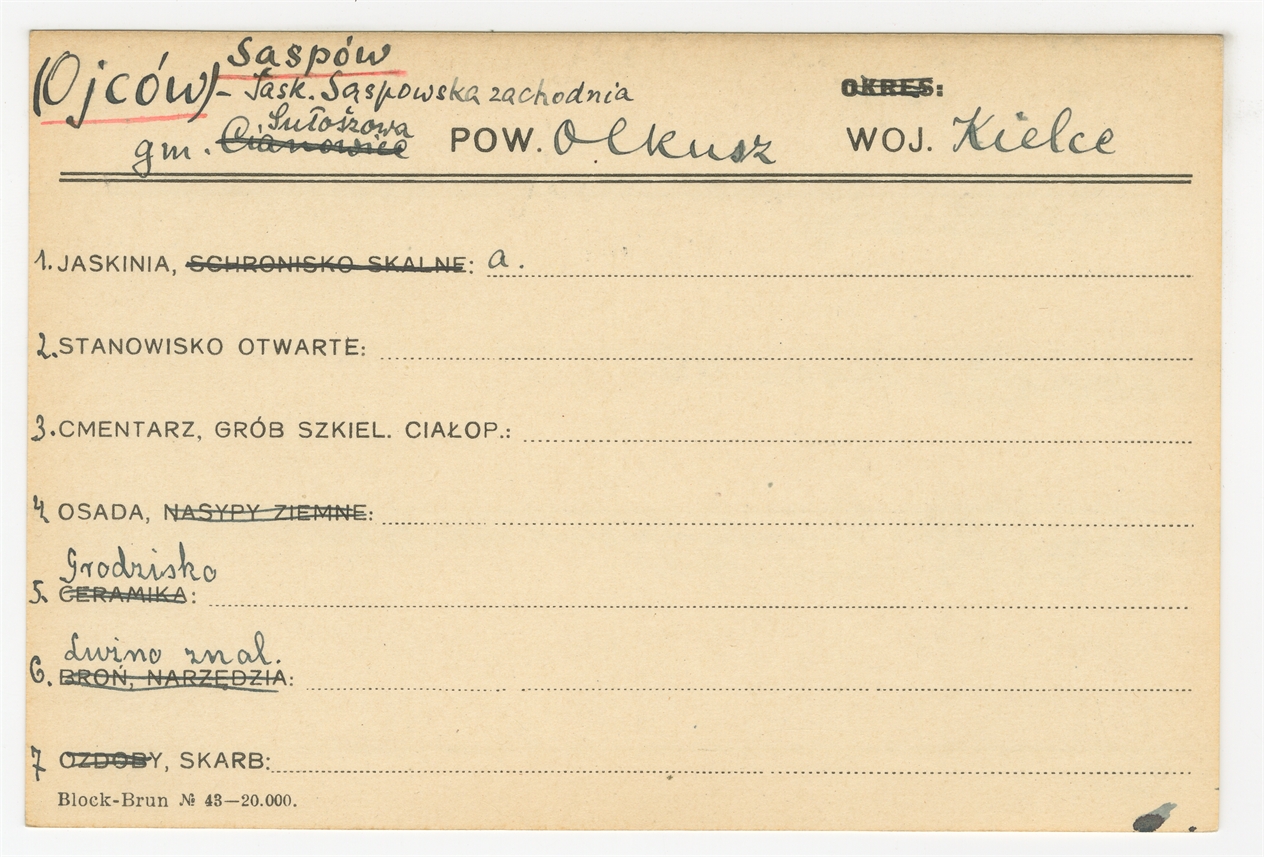 Sąspów
(Ojców) – Jask. Sąspowska zachodnia
OKRES:
Sułoszowa
gm. Cianowice POW. Olkusz WOJ. Kielce
1. JASKINIA, SCHRONISKO SKALNE: a.
2. STANOWISKO OTWARTE:
3. CMENTARZ, GRÓB SZKIEL. CIAŁOP.:
4. OSADA, NASYPY ZIEMNE:
Grodzisko
5. CERAMIKA:
Luźno znal.
6. BROŃ, NARZĘDZIA:
7 OZDOBY, SKARB:
Block-Brun № 43—20.000.